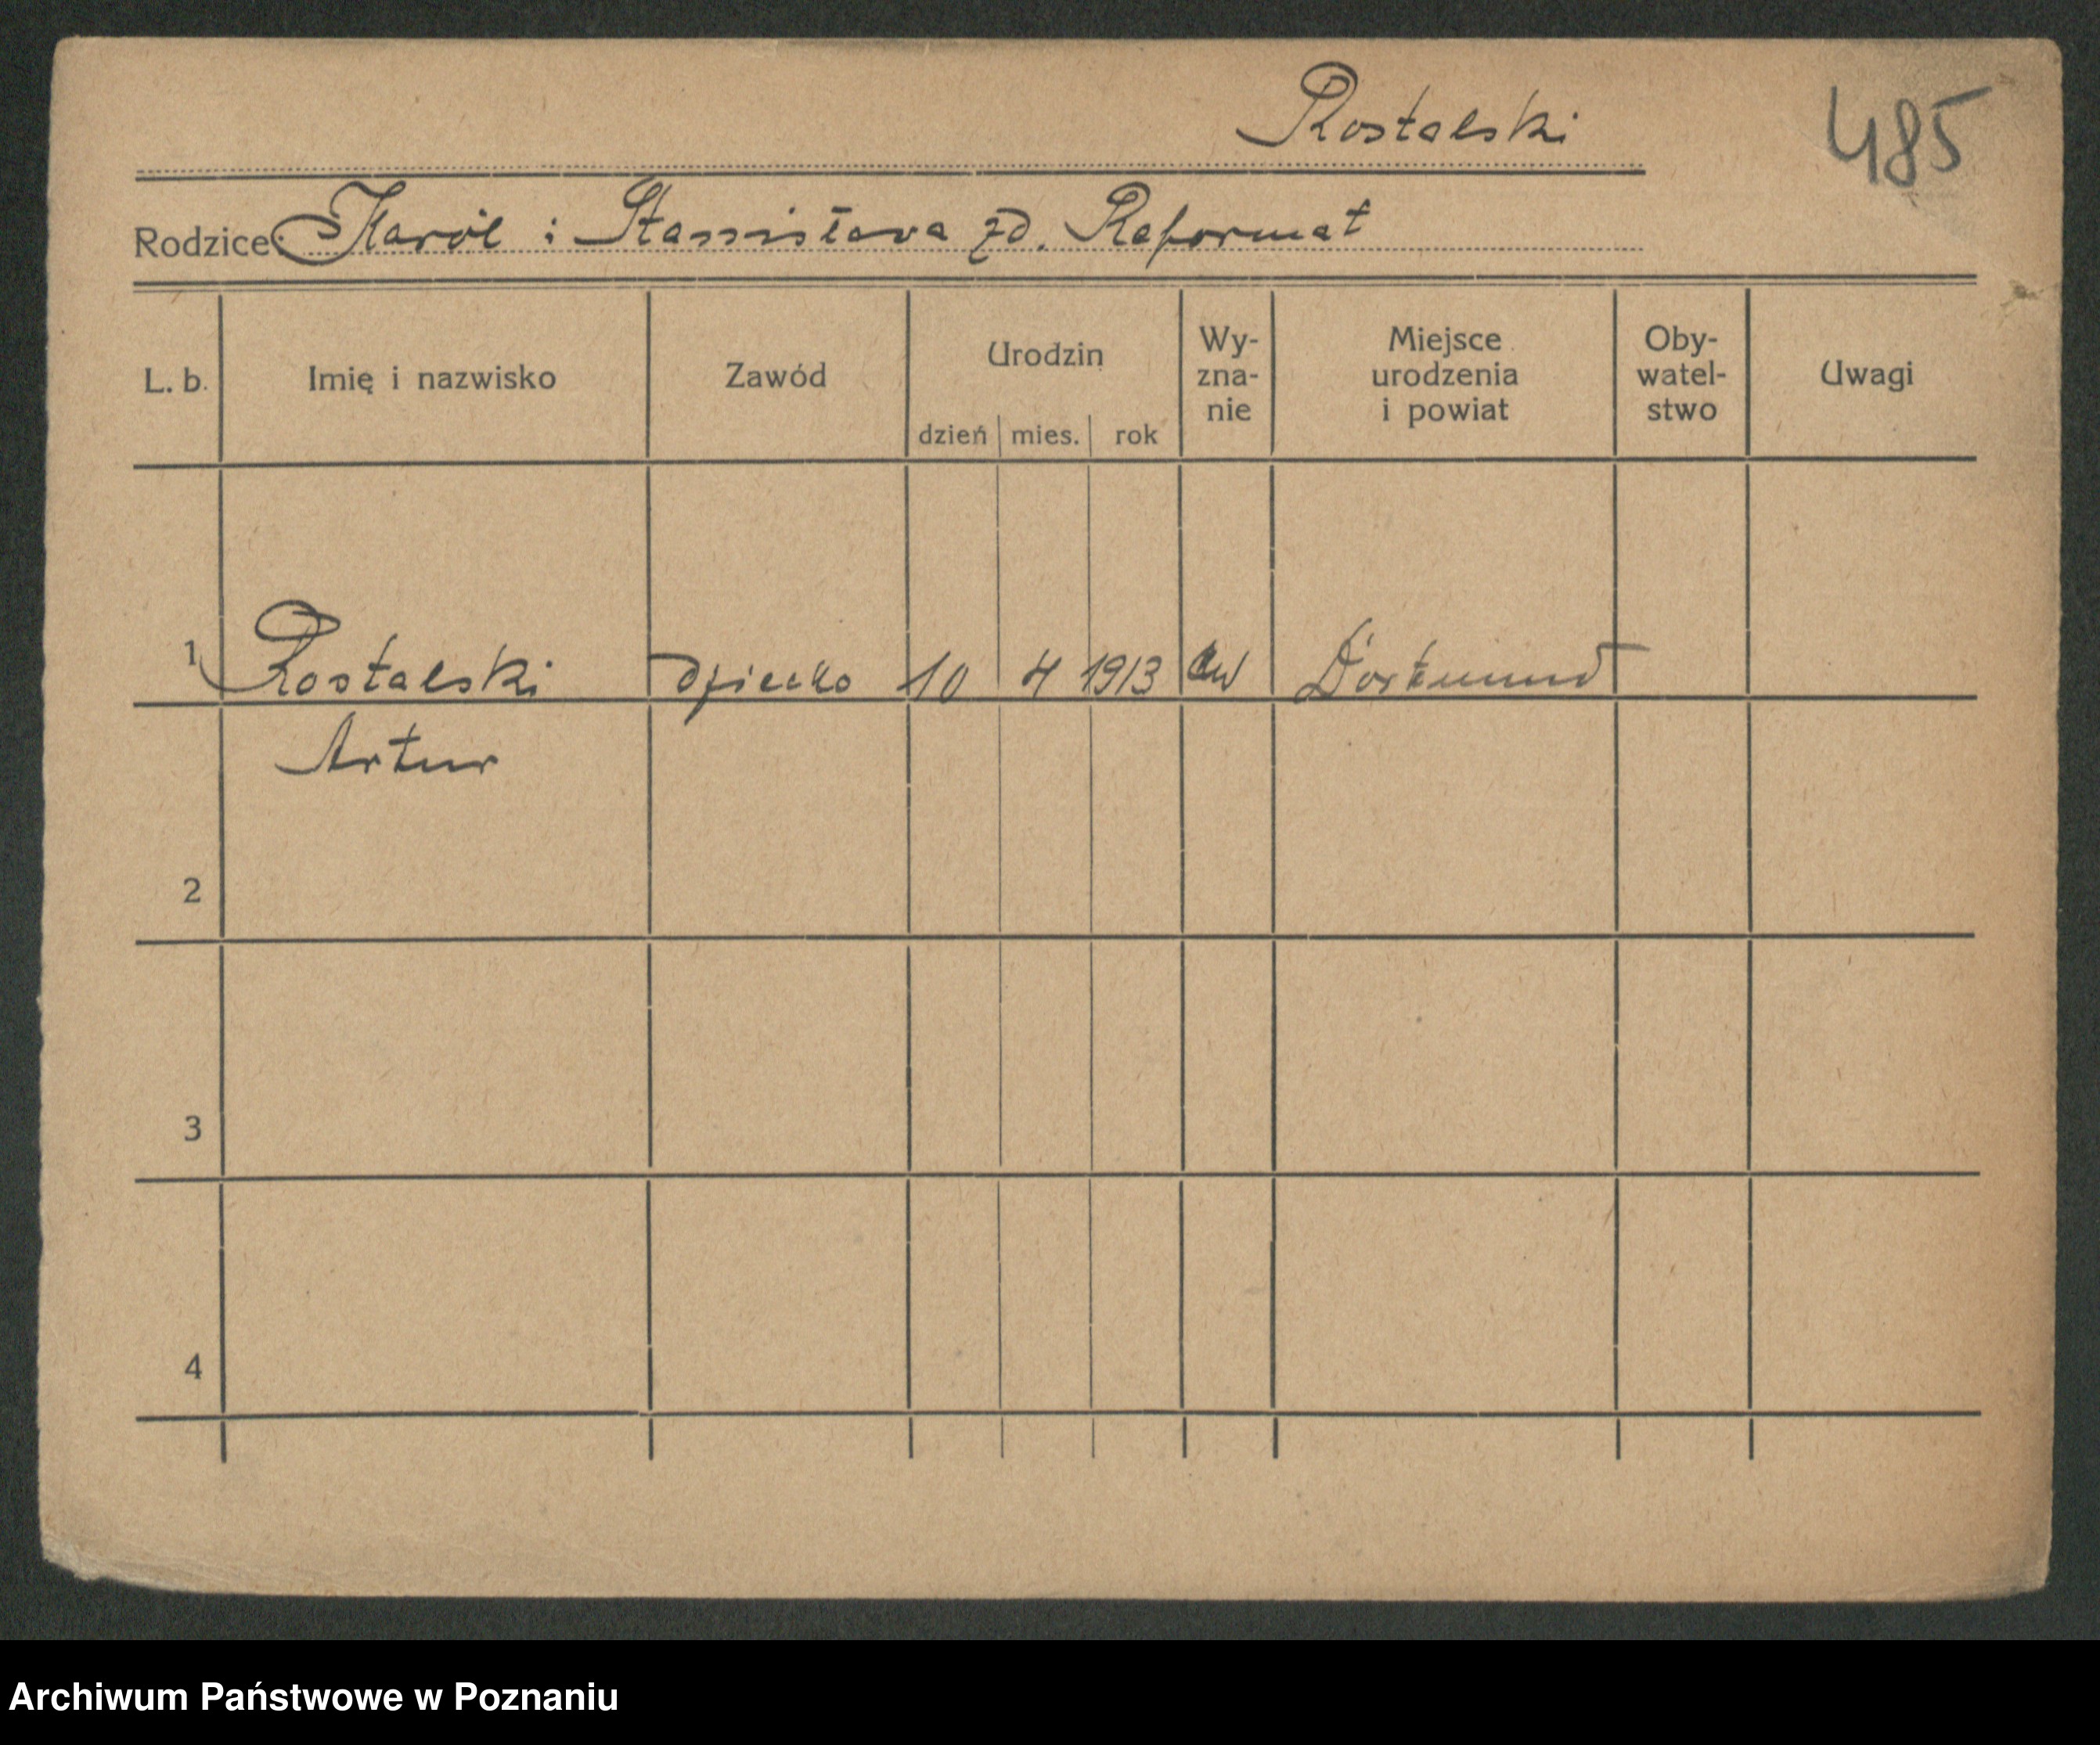 Rostalski
485
Rodzice: Karól i Stanisława zd. Reformat
L. b. Imię i nazwisko Zawód Urodzin dzień mies. rok Wy-zna-nie Miejsce urodzenia i powiat Oby-watel-stwo Uwagi
1 Rostalski dziecko 10 4 1913 Dortmund
Artur
2
3
4
Archiwum Państwowe w Poznaniu